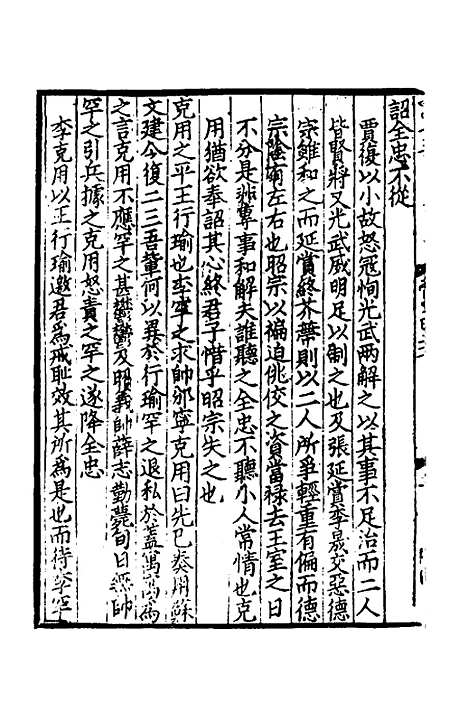 詔全忠不從
賈復以小故怒冦恂光武两解之以其事不足治而二人
皆賢將又光武威明足以制之也及張延賞李晟交惡德
宗雖和之而延賞終芥蔕則以二人所爭輕重有偏而德
宗陰有左右也昭宗以褊迫佻佼之資當禄去王室之日
不分是非專事和解夫誰聽之全忠不聽小人常情也克
用猶欲奉詔其心終君子惜乎昭宗失之也
克用之平王行瑜也李罕之求帥邠寧克用曰先已奏用蘇
文建今復二三吾輩何以異於行瑜罕之退私於蓋寓寓為
之言克用不應罕之甚鬱鬱及昭義帥薛志勤薨旬日無帥
罕之引兵據之克用怒責之罕之遂降全忠
李克用以王行瑜邀君為戒耻效其所為是也而待李罕